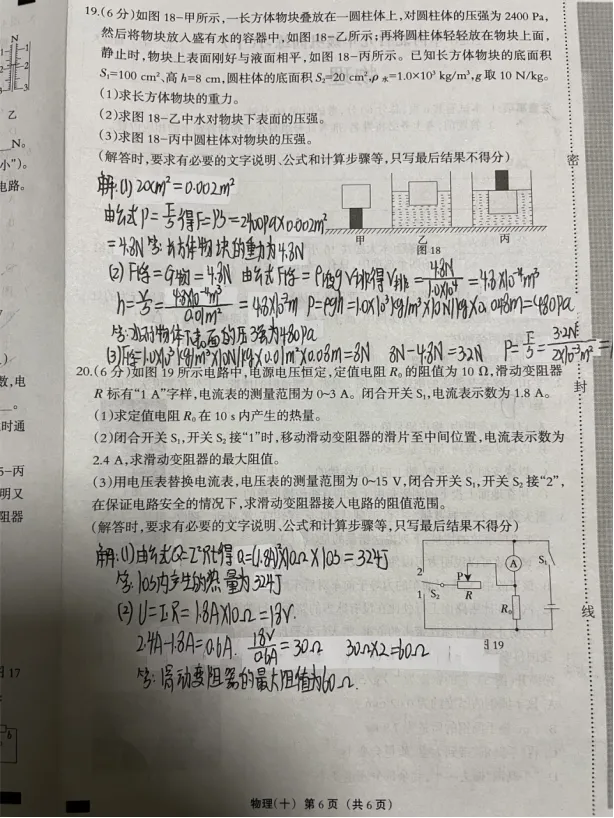 19.(6分)如图18-甲所示,一长方体物块叠放在一圆柱体上,对圆柱体的压强为2400 Pa,
然后将物块放入盛有水的容器中,如图18-乙所示;再将圆柱体轻轻放在物块上面,
静止时,物块上表面刚好与液面相平,如图18-丙所示。已知长方体物块的底面积
S₁=100 cm²、高h=8 cm,圆柱体的底面积S₂=20 cm²,ρ水=1.0×10³ kg/m³,g取10 N/kg。
(1)求长方体物块的重力。
(2)求图18-乙中水对物块下表面的压强。
(3)求图18-丙中圆柱体对物块的压强。
(解答时,要求有必要的文字说明、公式和计算步骤等,只写最后结果不得分)
解:(1) 20cm²=0.002m²
由公式P=F/S得F=PS=2400Pa×0.002m²
=4.8N 答:长方体物块的重力为4.8N
甲
乙
丙
图18
(2) F浮=G物=4.8N 由公式F浮=ρ液gV排得V排=4.8N/1.0×10⁴=4.8×10⁻⁴m³
h=V/S=4.8×10⁻⁴m³/0.01m²=4.8×10⁻²m P=ρgh=1.0×10³kg/m³×10N/kg×0.048m=480Pa
答:水对物体下表面的压强为480Pa
(3)F浮=1.0×10³kg/m³×10N/kg×0.01m²×0.08m=8N 8N-4.8N=3.2N P=F/S=3.2N/2×10⁻³m²=
20.(6分)如图19所示电路中,电源电压恒定,定值电阻R₀的阻值为10 Ω,滑动变阻器
R标有“1 A”字样,电流表的测量范围为0~3 A。闭合开关S₁,电流表示数为1.8 A。
(1)求定值电阻R₀在10 s内产生的热量。
(2)闭合开关S₁,开关S₂接“1”时,移动滑动变阻器的滑片至中间位置,电流表示数为
2.4 A,求滑动变阻器的最大阻值。
(3)用电压表替换电流表,电压表的测量范围为0~15 V,闭合开关S₁,开关S₂接“2”,
在保证电路安全的情况下,求滑动变阻器接入电路的阻值范围。
(解答时,要求有必要的文字说明、公式和计算步骤等,只写最后结果不得分)
解:(1)由公式Q=I²Rt得Q=(1.8A)²×10Ω×10s=324J
答:10s内产生的热量为324J
(2) U=IR=1.8A×10Ω=18V.
2.4A-1.8A=0.6A. 18V/0.6A=30Ω 30Ω×2=60Ω
答:滑动变阻器的最大阻值为60Ω.
A
S₁
P
1
S₂
R
R₀
图19
物理(十) 第6页 (共6页)
密
封
线
N
乙
N。
小”)。
电路。
数,电
时通
5-丙
明又
阻器
17